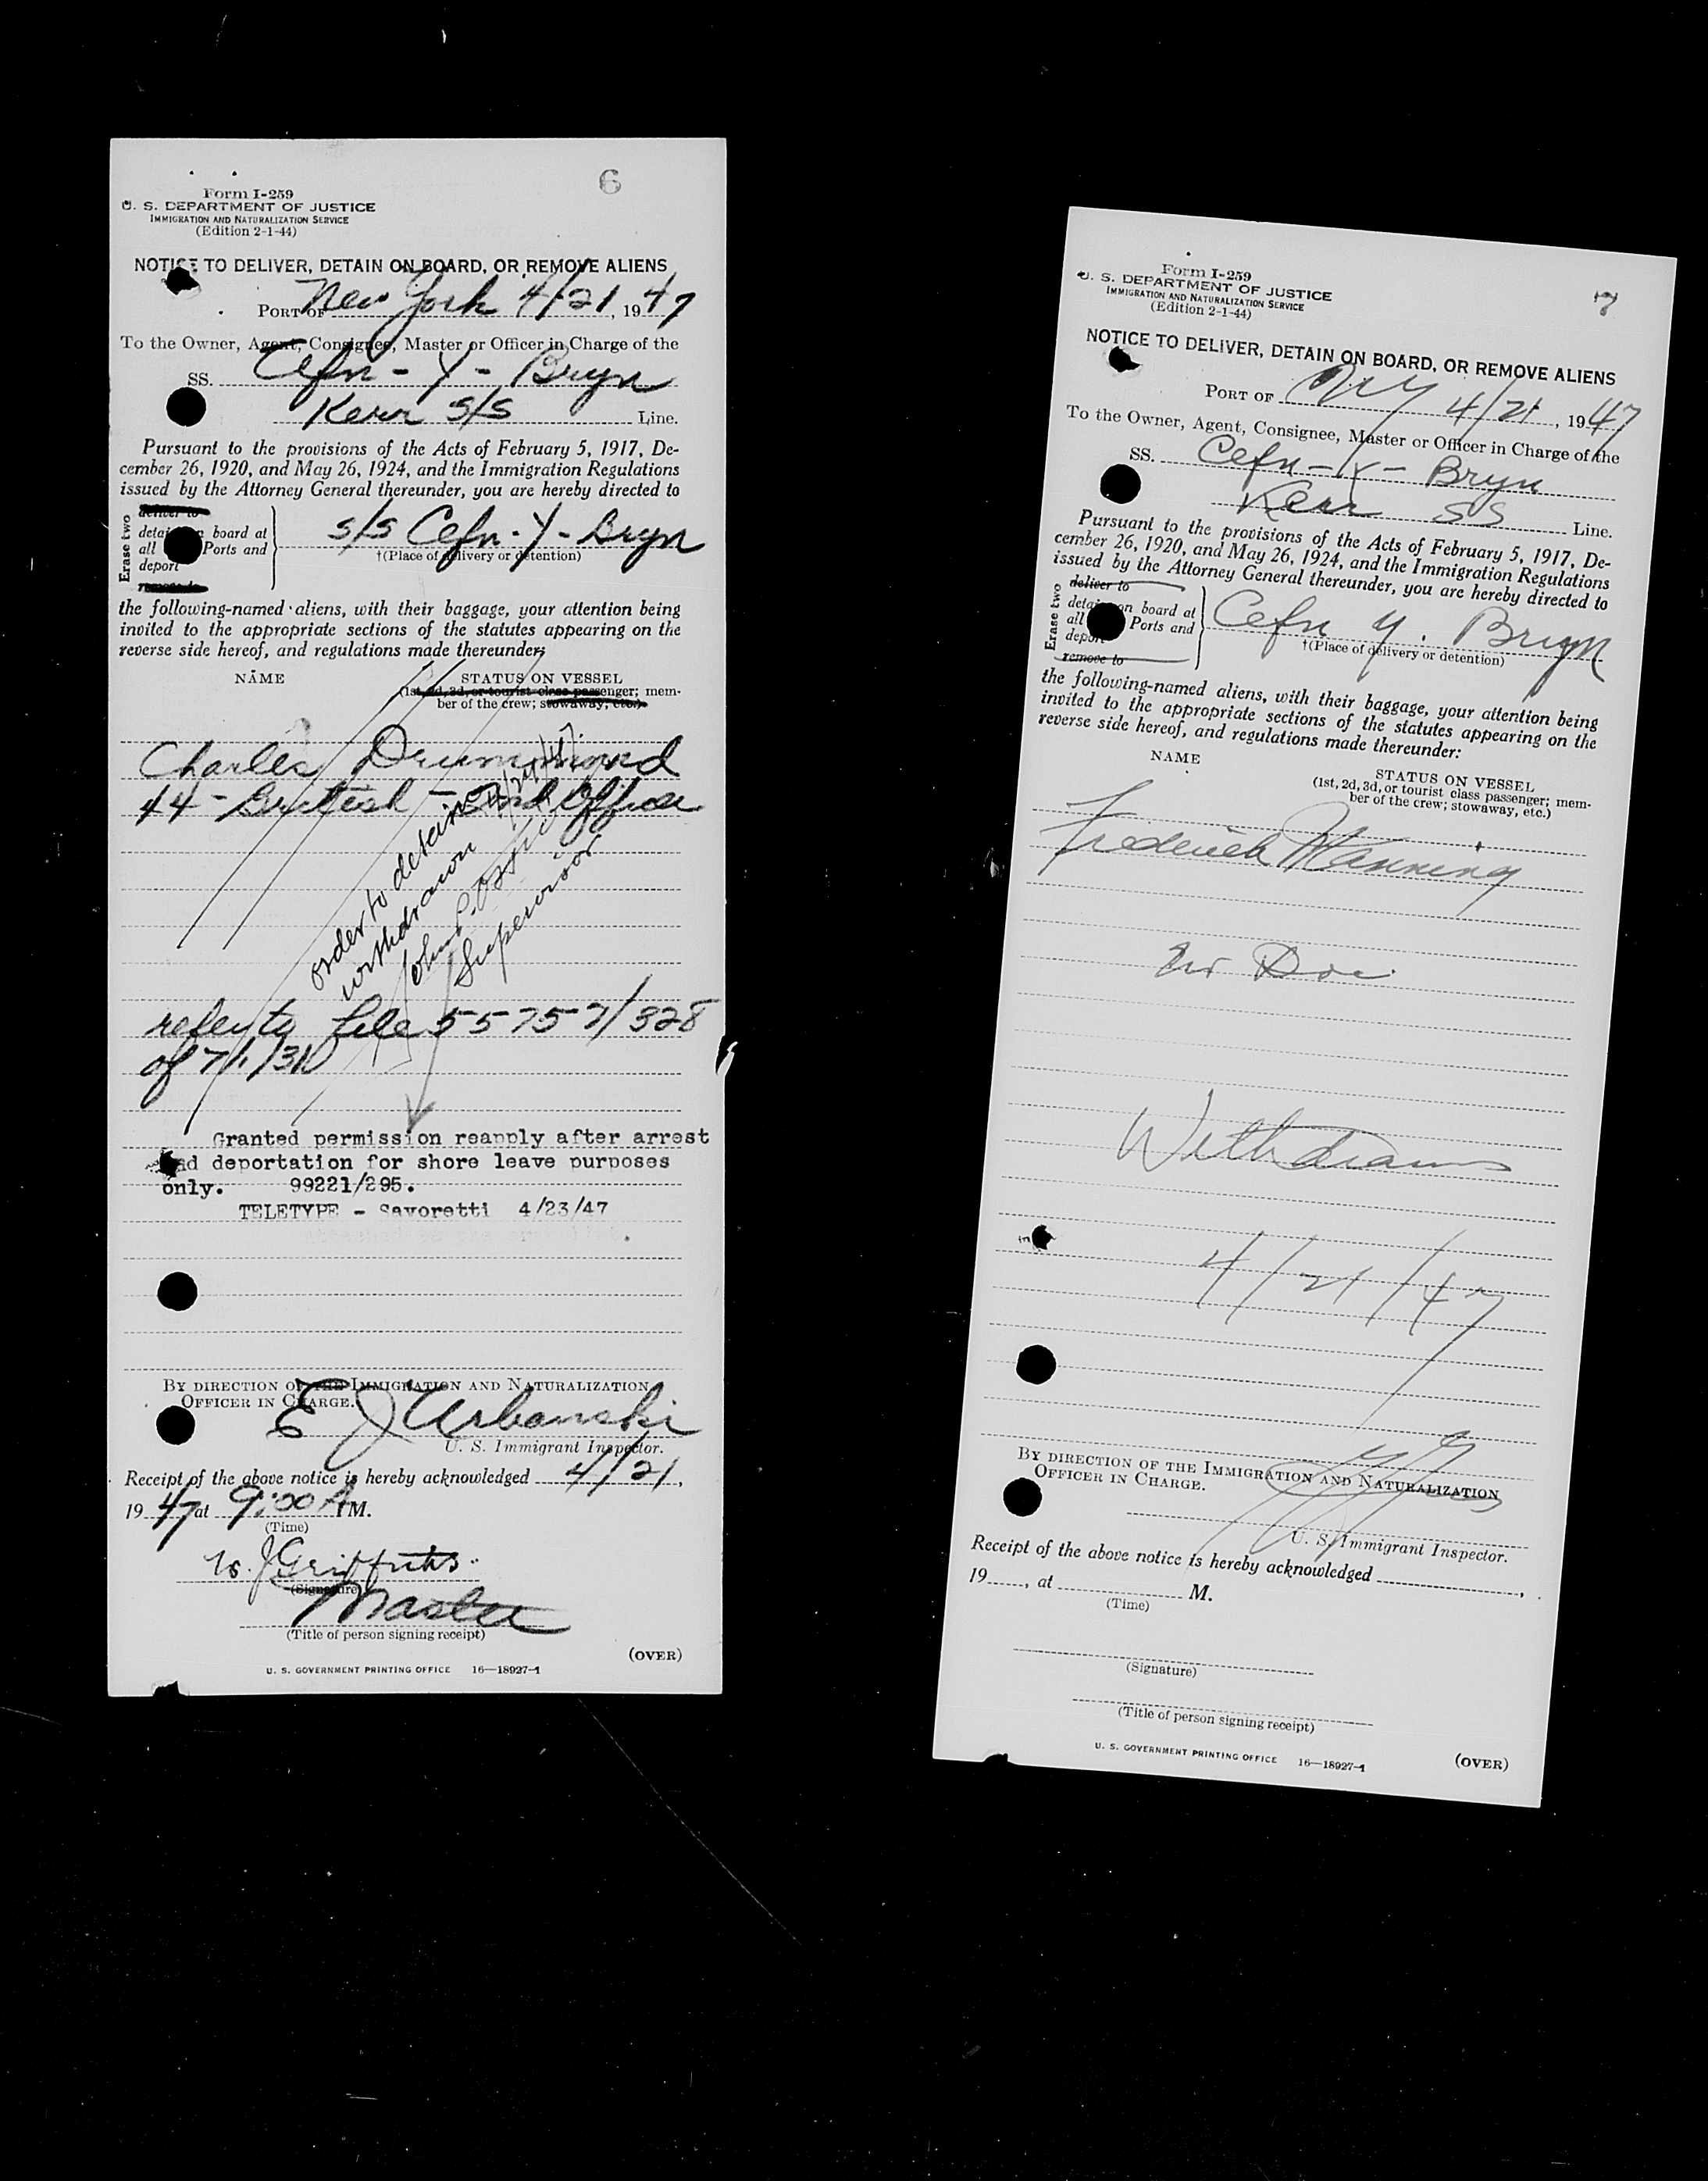 6
Form I-259
U. S. DEPARTMENT OF JUSTICE
IMMIGRATION AND NATURALIZATION SERVICE
(Edition 2-1-44)
NOTICE TO DELIVER, DETAIN ON BOARD, OR REMOVE ALIENS
PORT OF New York 4/21, 1947
To the Owner, Agent, Consignee, Master or Officer in Charge of the
SS. Cefn-Y-Bryn
Kerr S/S Line.
Pursuant to the provisions of the Acts of February 5, 1917, De-
cember 26, 1920, and May 26, 1924, and the Immigration Regulations
issued by the Attorney General thereunder, you are hereby directed to
Erase two
deliver to
detain on board at
all Ports and
deport
remove to
S/S Cefn-Y-Bryn
†(Place of delivery or detention)
the following-named aliens, with their baggage, your attention being
invited to the appropriate sections of the statutes appearing on the
reverse side hereof, and regulations made thereunder:
NAME
STATUS ON VESSEL
(1st, 2d, 3d, or tourist class passenger; mem-
ber of the crew; stowaway, etc.)
Charles Drummond
44 - British - 2nd Officer
order to detain
withdrawn
John P.
Supervisor
refer to file 55757/328
of 7/1/31
Granted permission reapply after arrest
and deportation for shore leave purposes
only. 99221/295.
TELETYPE - Savoretti 4/23/47
BY DIRECTION OF THE IMMIGRATION AND NATURALIZATION
OFFICER IN CHARGE.
E J Urbanski
U. S. Immigrant Inspector.
Receipt of the above notice is hereby acknowledged 4/21,
1947 at 9:00 A M.
(Time)
W. J Griffiths
(Signature)
Master
(Title of person signing receipt)
(OVER)
U. S. GOVERNMENT PRINTING OFFICE 16—18927-1
7
Form I-259
U. S. DEPARTMENT OF JUSTICE
IMMIGRATION AND NATURALIZATION SERVICE
(Edition 2-1-44)
NOTICE TO DELIVER, DETAIN ON BOARD, OR REMOVE ALIENS
PORT OF NY 4/21, 1947
To the Owner, Agent, Consignee, Master or Officer in Charge of the
SS. Cefn-Y-Bryn
Kerr SS Line.
Pursuant to the provisions of the Acts of February 5, 1917, De-
cember 26, 1920, and May 26, 1924, and the Immigration Regulations
issued by the Attorney General thereunder, you are hereby directed to
Erase two
deliver to
detain on board at
all Ports and
deport
remove to
Cefn Y. Bryn
†(Place of delivery or detention)
the following-named aliens, with their baggage, your attention being
invited to the appropriate sections of the statutes appearing on the
reverse side hereof, and regulations made thereunder:
NAME
STATUS ON VESSEL
(1st, 2d, 3d, or tourist class passenger; mem-
ber of the crew; stowaway, etc.)
Frederick Manning
No Doc.
Withdrawn
4/21/47
BY DIRECTION OF THE IMMIGRATION AND NATURALIZATION
OFFICER IN CHARGE.
U. S. Immigrant Inspector.
Receipt of the above notice is hereby acknowledged
19 , at M.
(Time)
(Signature)
(Title of person signing receipt)
U. S. GOVERNMENT PRINTING OFFICE 16—18927-1
(OVER)